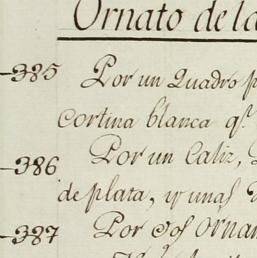 Ornato de la
385 Por un Quadro p
cortina blanca qᵉ.
386 Por un Caliz,
de plata, y unas
387 Por dos Orna